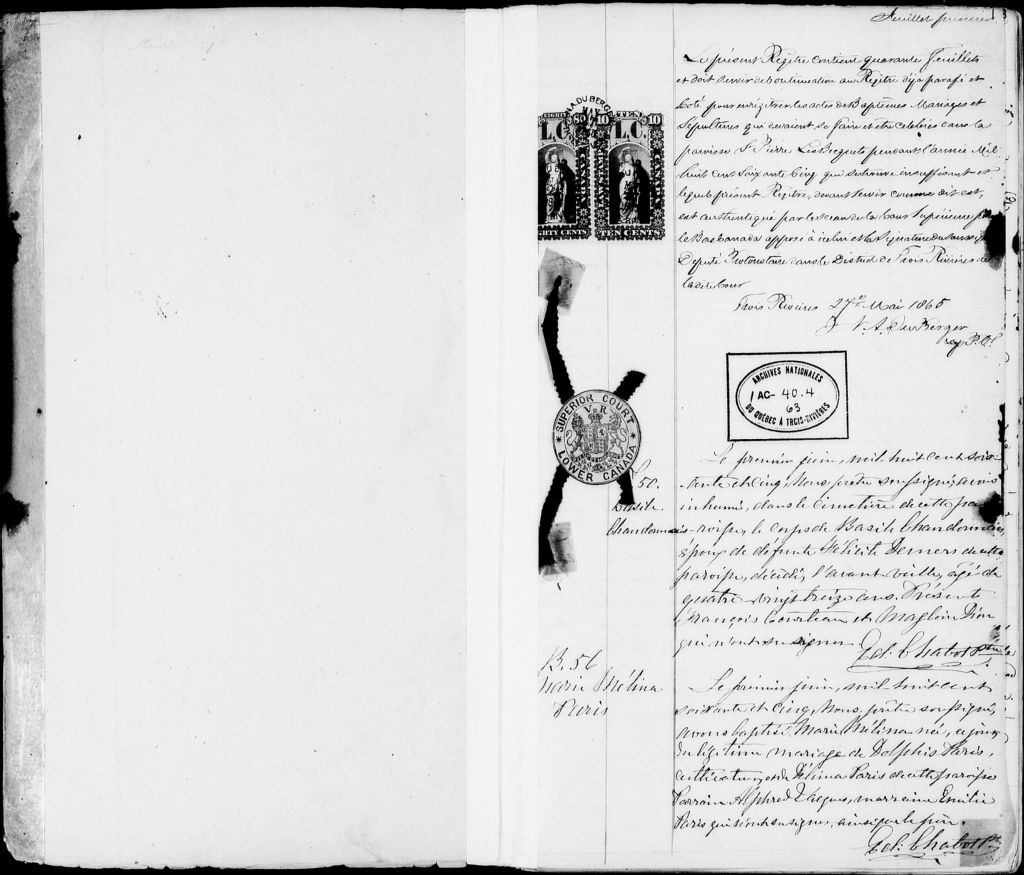 Feuillet premier
Le présent Régître contient quarante feuillets
et doit servir de continuation au Régître déja parafé et
Coté pour enrégîtrer les actes de Baptêmes Mariages et
Sépultures qui devaient se faire et être célébrés dans la
paroisse St Pierre Les Becquets pendant l'année Mil
huit cent Soixante Cinq qui se trouve insuffisant et
lequel présent Régître, devant servir comme dit est,
est authentiqué par le sceau de la Cour Supérieure pour
le Bas Canada apposé à icelui et la Signature du Soussigné
Député Protonotaire dans le District de Trois Rivières de
la dite Cour
Trois Rivières 27 Mai 1865
V. A. DuBerger
A DU BERGER
MAY
L.C.
10
L.C.
10
EIGHTY CENTS
TEN CENTS
SUPERIOR COURT
V R
LOWER CANADA
ARCHIVES NATIONALES
AC- 40.4
63
DU QUÉBEC À TROIS-RIVIÈRES
S 50.
Basile
Chandonnais
Le premier juin, mil-huit cent soix-
ante et cinq, Nous prêtre soussigné, avons
inhumé, dans le cimetière de cette pa-
roisse, le corps de Basile Chandonnais,
époux de défunte Félicité Demers de cette
paroisse, décédé, l'avant veille, agé de
quatre vingt treize ans. Présents
François Courteau et Magloire Dion
qui n'ont su signer.
Ed: Chabot Ptre
B. 56
Marie Mélina
Paris
Le premier juin, mil-huit cent
soixante et cinq, Nous, prêtre soussigné,
avons baptisé Marie Mélina née, ce jour
du légitime mariage de Dolphis Paris,
cultivateur, et de Zélima Paris de cette paroisse
Parrain Alphred marraine Emilie
Paris qui n'ont su signer, ainsi que le père.
Ed: Chabot Ptre